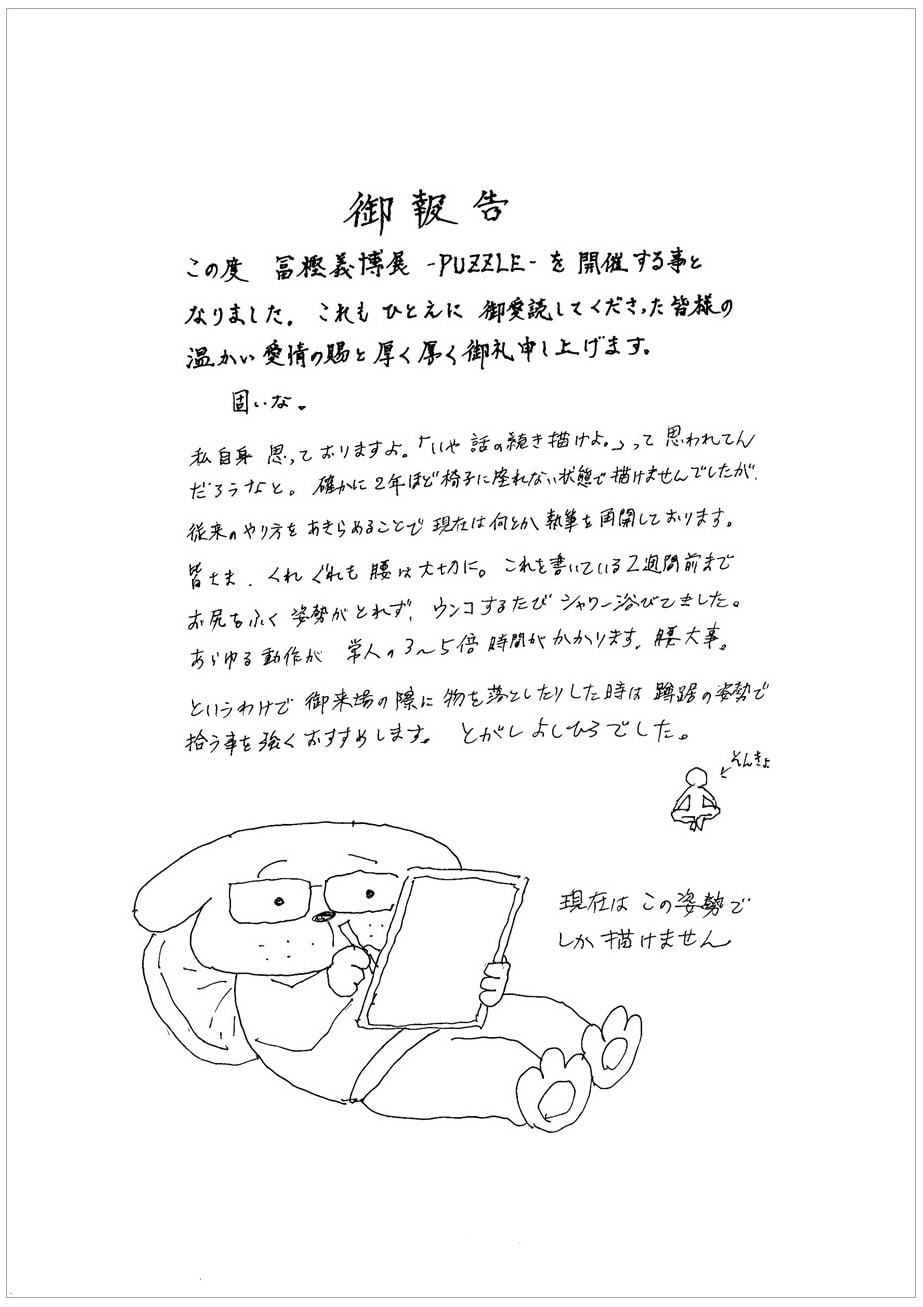 御報告
この度 冨樫義博展 -PUZZLE- を開催する事と
なりました。これもひとえに 御愛読してくださった皆様の
温かい愛情の賜と厚く厚く御礼申し上げます。
固いな。
私自身 思っておりますよ。「いや 話の続き描けよ。」って 思われてん
だろうなと。確かに2年ほど椅子に座れない状態で描けませんでしたが、
従来のやり方をあきらめることで現在は何とか執筆を再開しております。
皆さま、くれぐれも腰は大切に。これを書いている2週間前まで
お尻をふく姿勢がとれず、ウンコするたびシャワー浴びてきました。
あらゆる動作が 常人の3〜5倍時間がかかります。腰大事。
というわけで 御来場の際に物を落としたりした時は 蹲踞の姿勢で
拾う事を強くおすすめします。とがしよしひろでした。
そんきょ
現在は この姿勢で
しか描けません